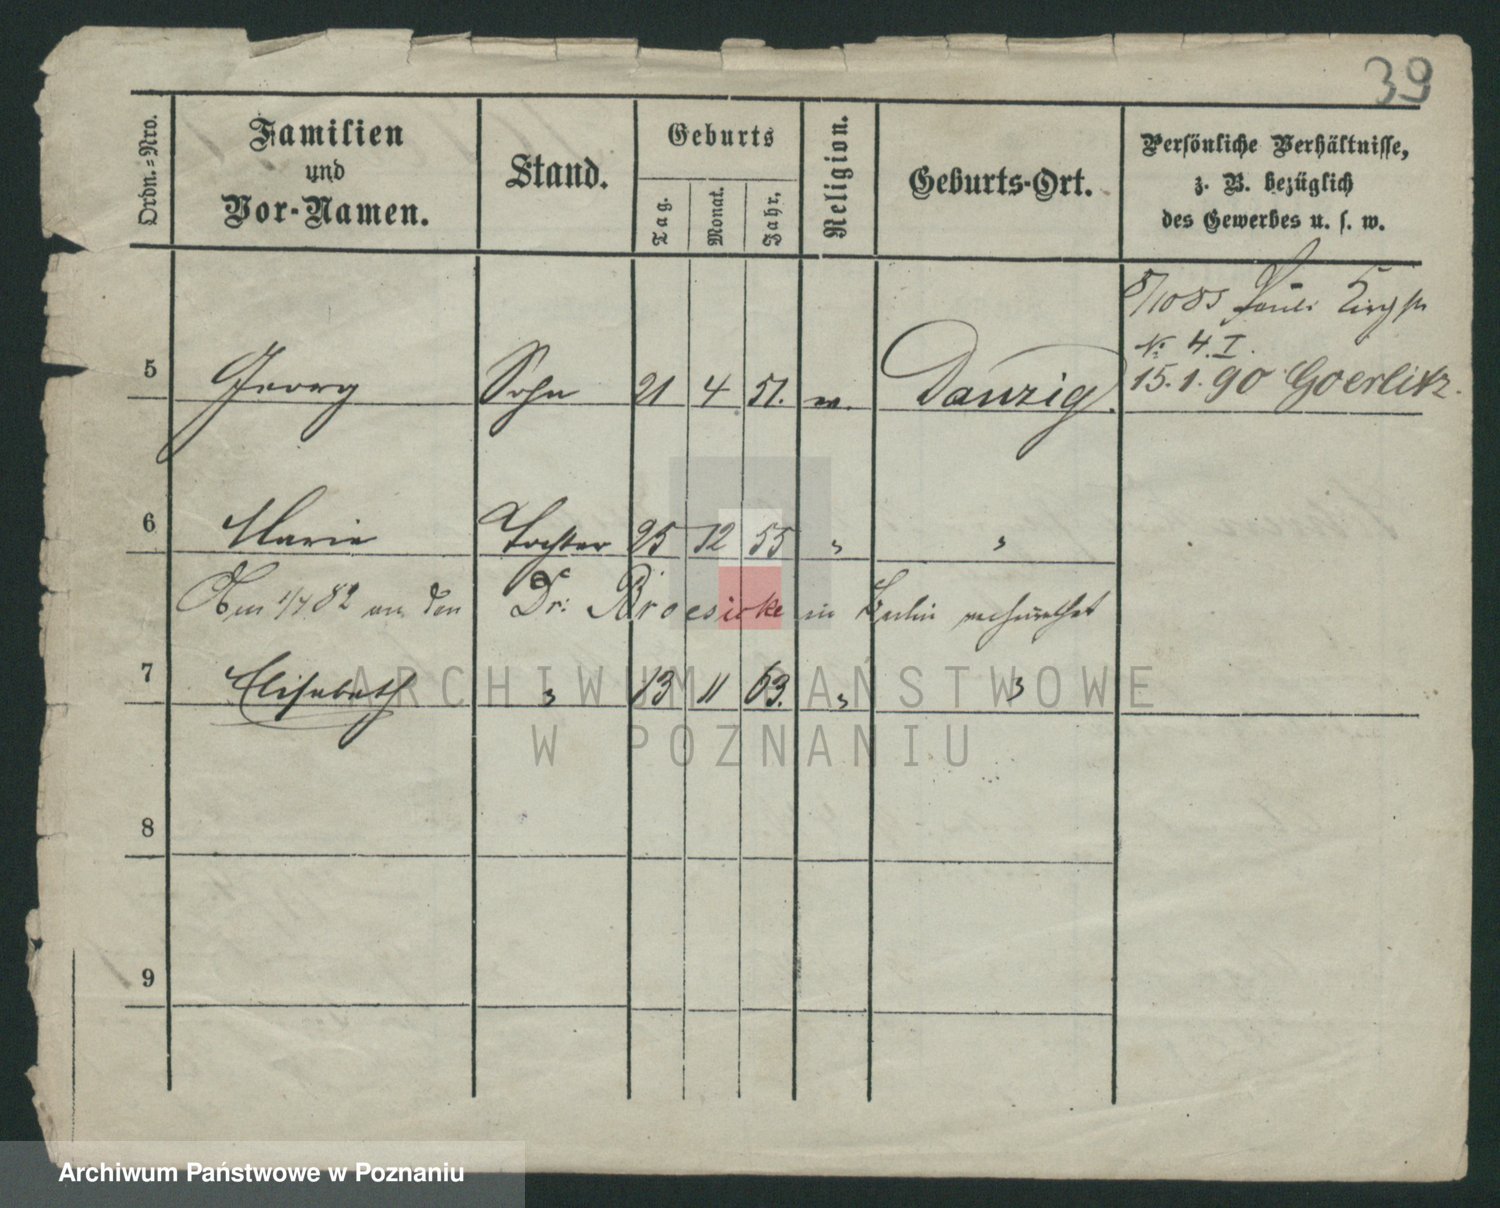 39
Ordn.=Nro.
Familien
und
Vor-Namen.
Stand.
Geburts
Tag.
Monat.
Jahr.
Religion.
Geburts-Ort.
Persönliche Verhältnisse,
z. B. bezüglich
des Gewerbes u. s. w.
8/10 85 Pauli
No 4. I.
15.1.90 Goerlitz.
5 Georg Sohn 21 4 51. Danzig.
6 Marie Tochter 25 12 55 " "
1/4 82 an den Dr. Broesicke in Berlin verheirathet
7 Elisabeth " 13 11 63. " "
8
9
ARCHIWUM PAŃSTWOWE
W POZNANIU
Archiwum Państwowe w Poznaniu